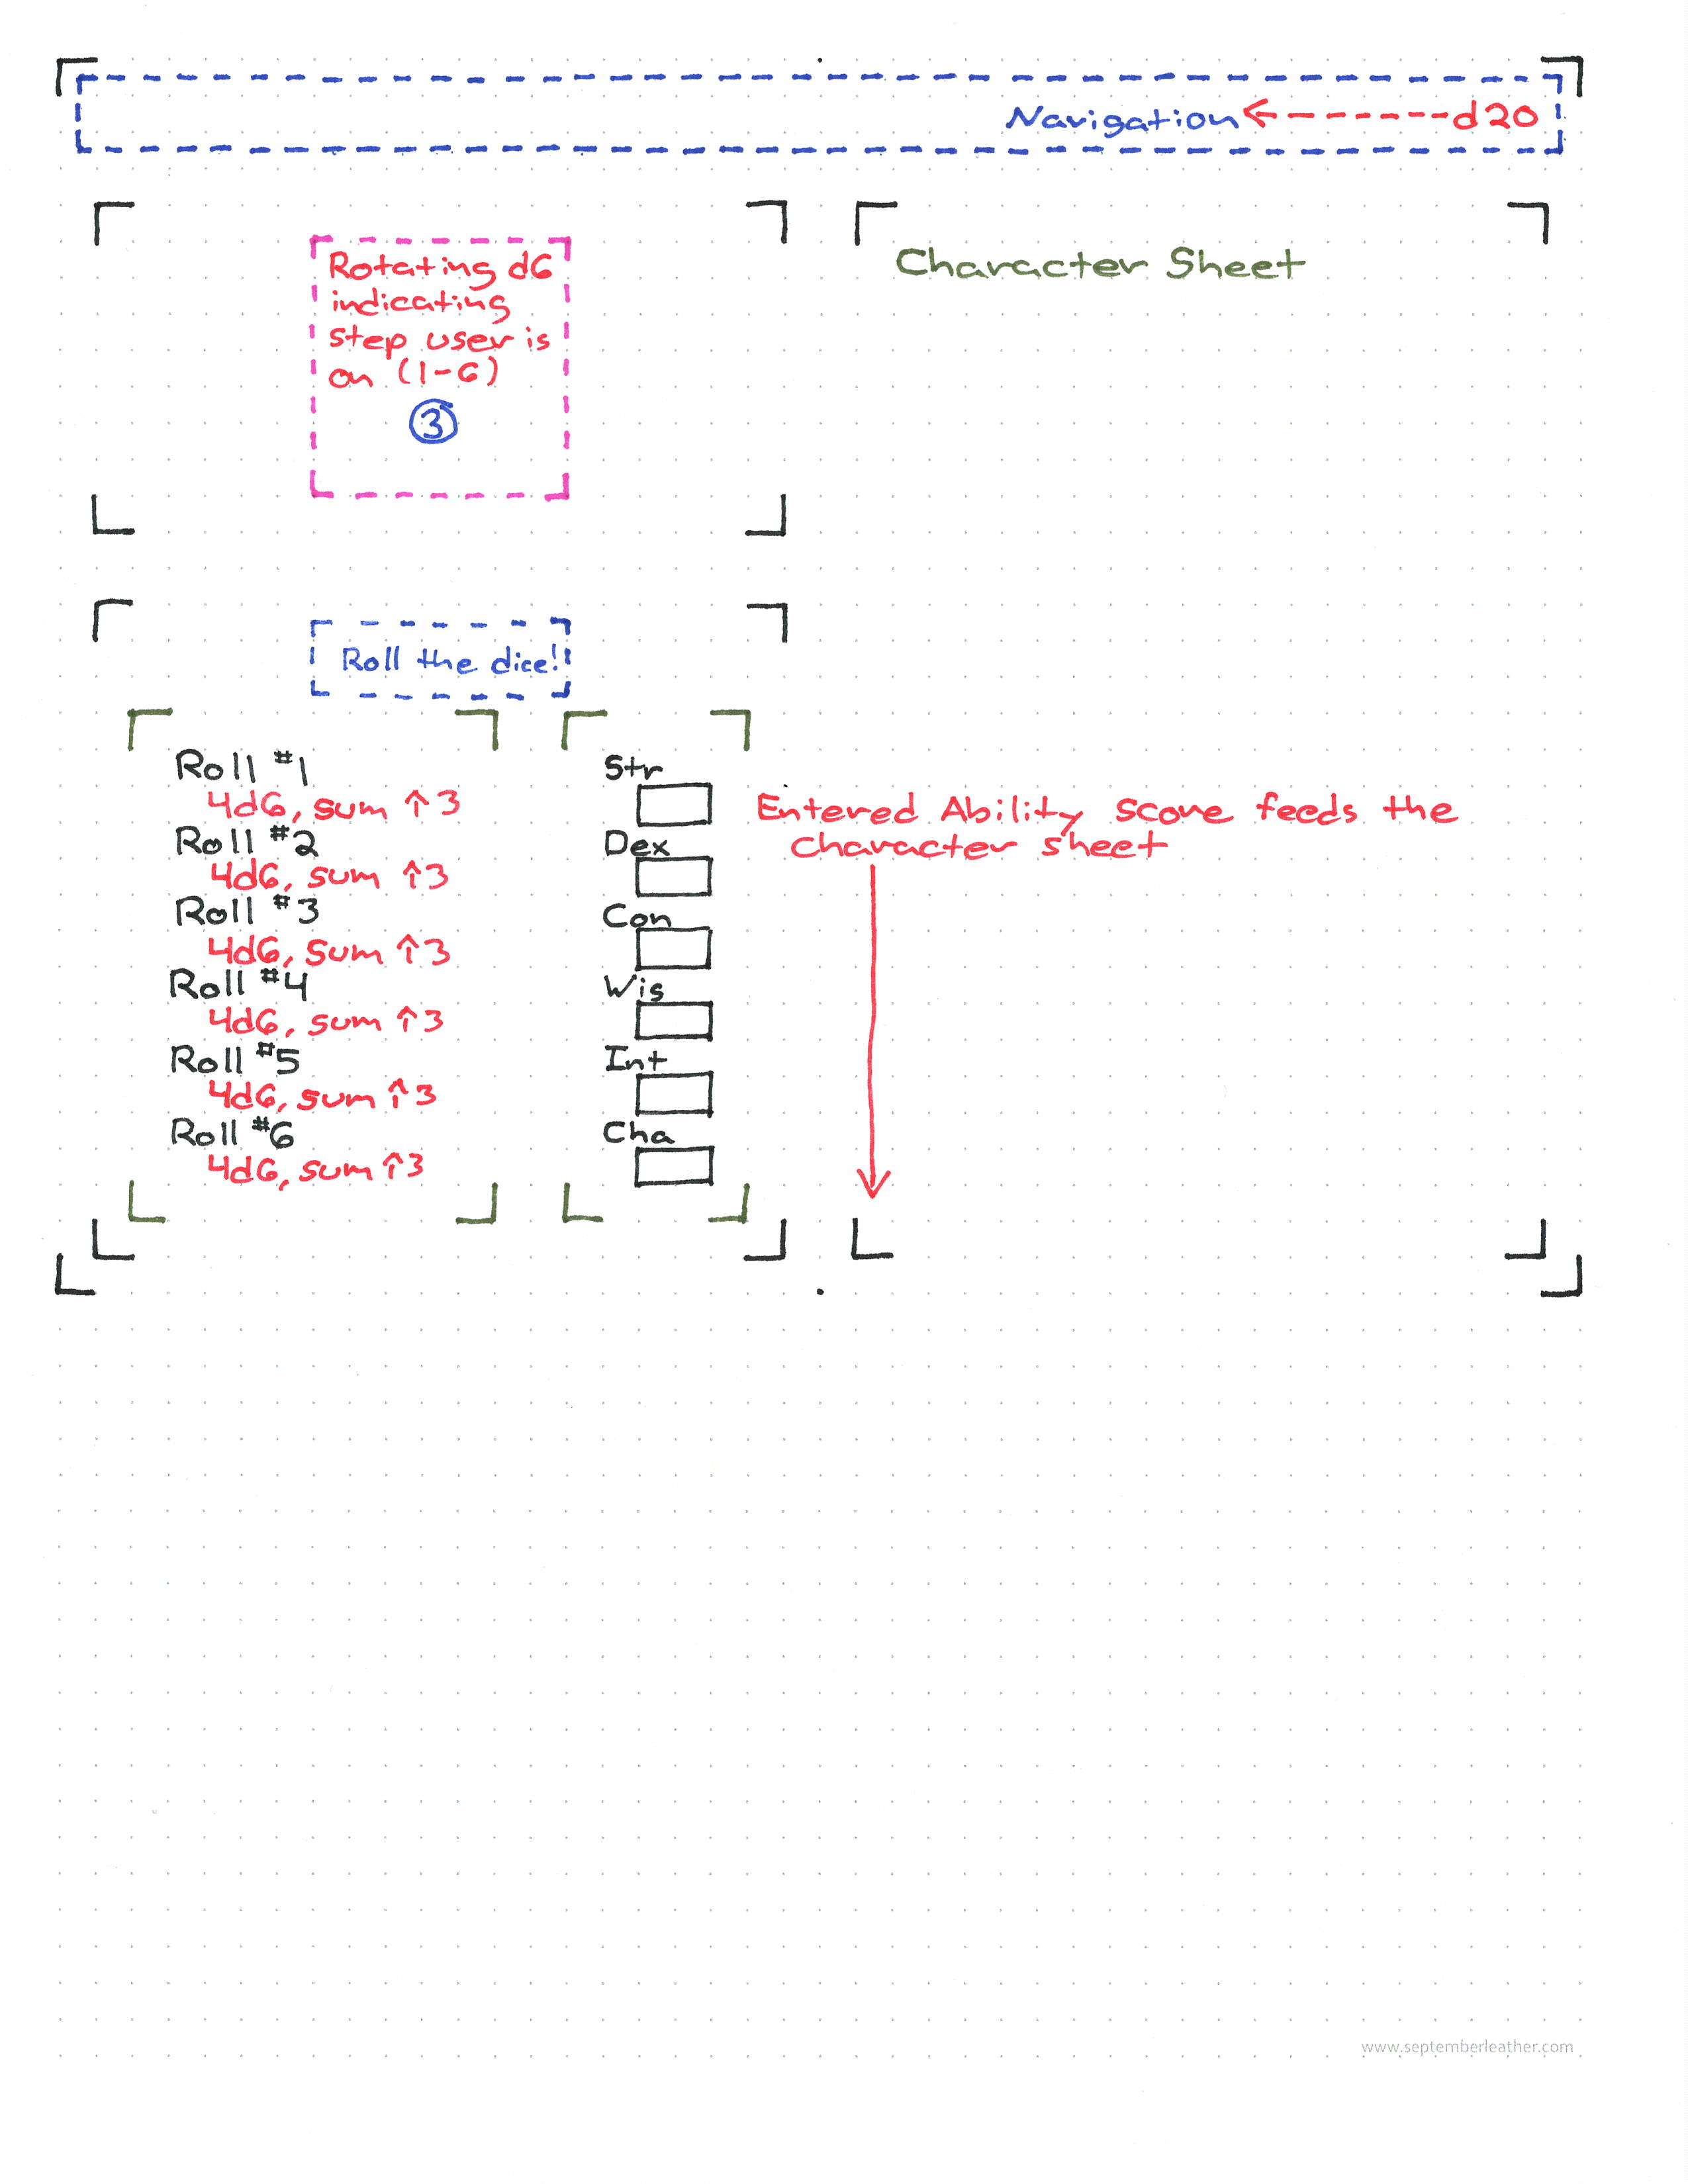 Navigation ← d20
Rotating d6
indicating
step user is
on (1-6)
3
Character Sheet
Roll the dice!
Roll #1
4d6, sum ↑3
Roll #2
4d6, sum ↑3
Roll #3
4d6, sum ↑3
Roll #4
4d6, sum ↑3
Roll #5
4d6, sum ↑3
Roll #6
4d6, sum ↑3
Str
Dex
Con
Wis
Int
Cha
Entered Ability score feeds the
character sheet
www.septemberleather.com